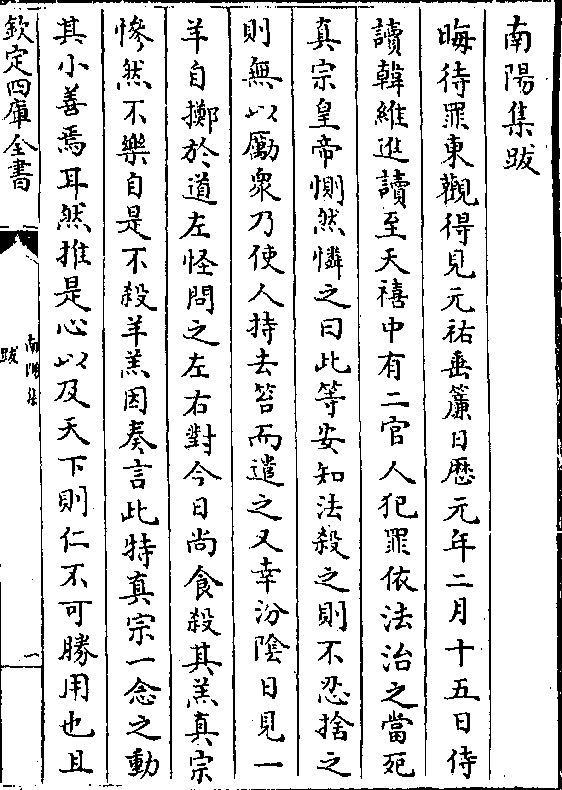 南陽集跋
晦待罪東觀得見元祐垂簾日厯元年二月十五日侍
讀韓維進讀至天禧中有二官人犯罪依法治之當死
真宗皇帝惻然憐之曰此等安知法殺之則不忍捨之
則無以勵衆乃使人持去笞而遣之又幸汾陰日見一
羊自擲於道左怪問之左右對今日尚食殺其羔真宗
慘然不樂自是不殺羊羔因奏言此特真宗一念之動
其小善焉耳然推是心以及天下則仁不可勝用也且
欽定四庫全書
南陽集
跋
一